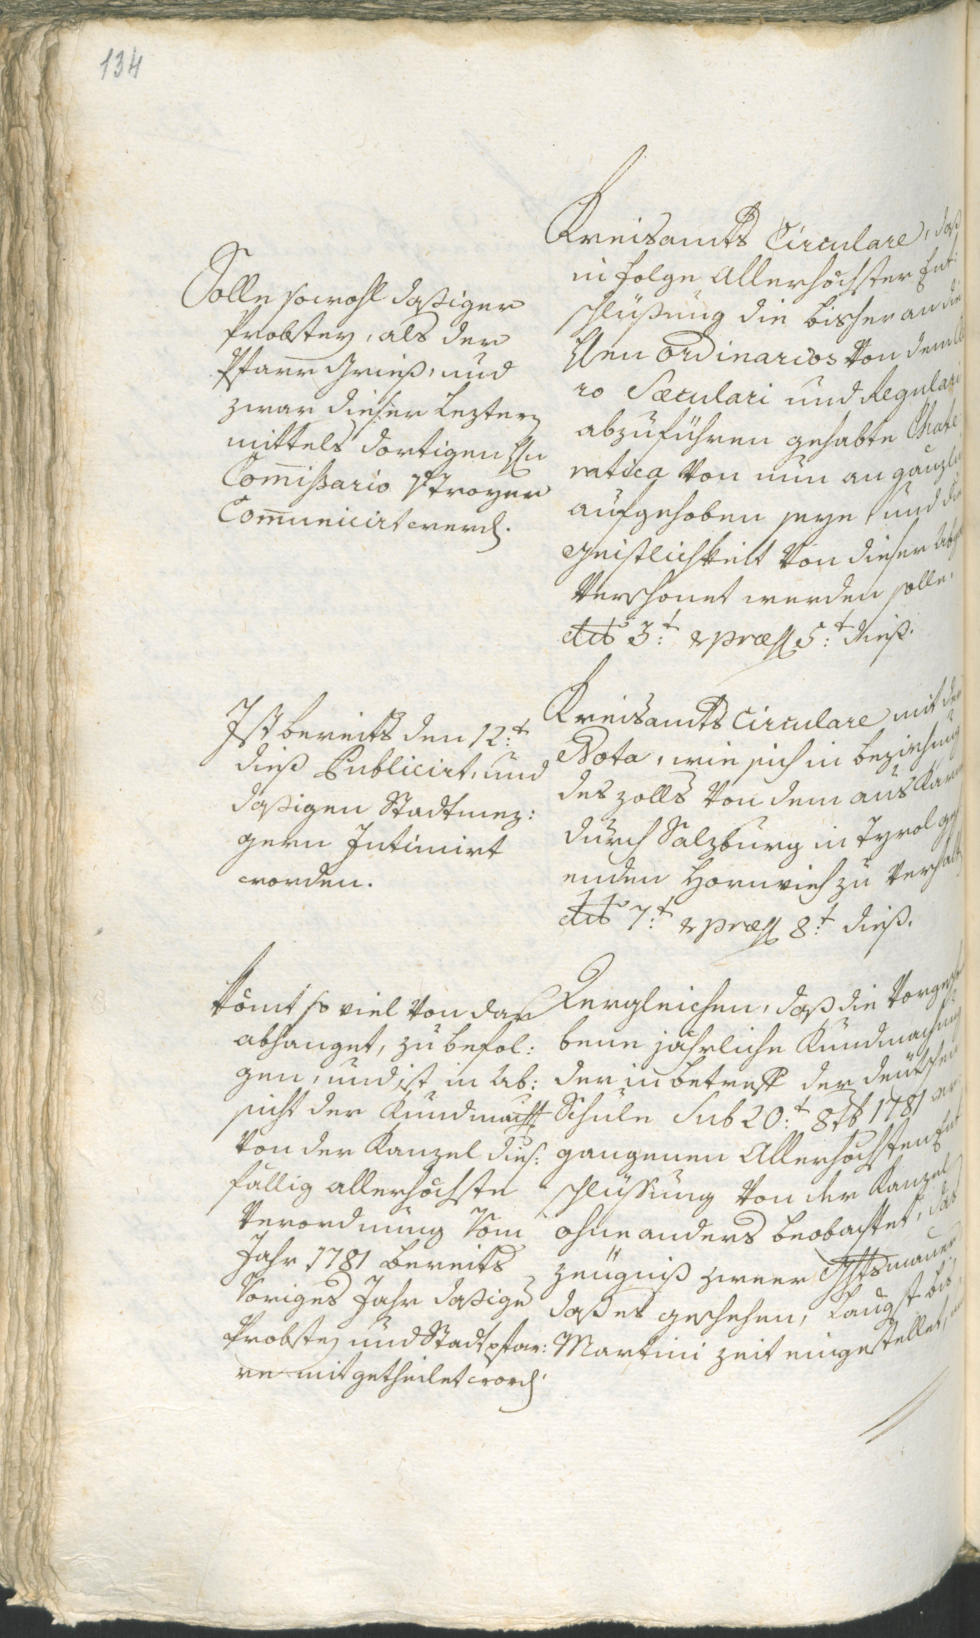 134
Solle sowohl daßiger
Probstey, als der
Pfarr Grieß, und
zwar dieser leztern
mittels dortigen Hn
Commißario Troyer
Communicirt werd.
Kreisamts Circulare, daß
in folge Allerhöchster Ent:
schlüßung die bisher an die
Hen Ordinarios von dem Cle
ro Sæculari und Regulari
abzuführen gehabte Cathe
ratica von nun an gänzlich
aufgehoben seye, und die
geistlichkeit von dieser
verschonet werden solle,
dto 3:t & præs 5:t dieß.
Ist bereits den 12:t
dieß Publicirt, und
daßigen Stadtmez:
gern Intimirt
worden.
Kreisamts Circulare mit der
Nota, wie sich in beziehung
des zolls von dem aus
durch Salzburg in Tyrol
enden Hornvieh zu verhalt
dto 7:t & præs 8:t dieß.
Kömt so viel von dar
abhanget, zu befol:
gen, und ist in Ab:
sicht der Kundmach
von der Kanzel dies:
fällig allerhöchste
Verordnung vom
Jahr 1781 bereits
voriges Jahr daßige
Probstey und Stadtpfar:
re mitgetheilet word.
Dergleichen, daß die vorge
bene jährliche Kundmachung
der in betreff der deutschen
Schule sub 20:t 8tb 1781 er
gangenen Allerhöchsten Ent
schlüssung von der Kanzel
ohne anders beobachtet, das
zeügniß zweer
daß es geschehen, längst bis
Martini zeit eingestellet,